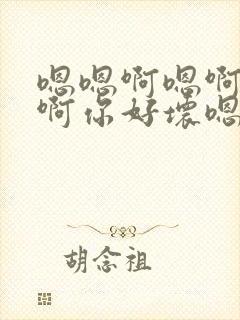 嗯嗯啊嗯啊
啊你好坏嗯
胡念祖